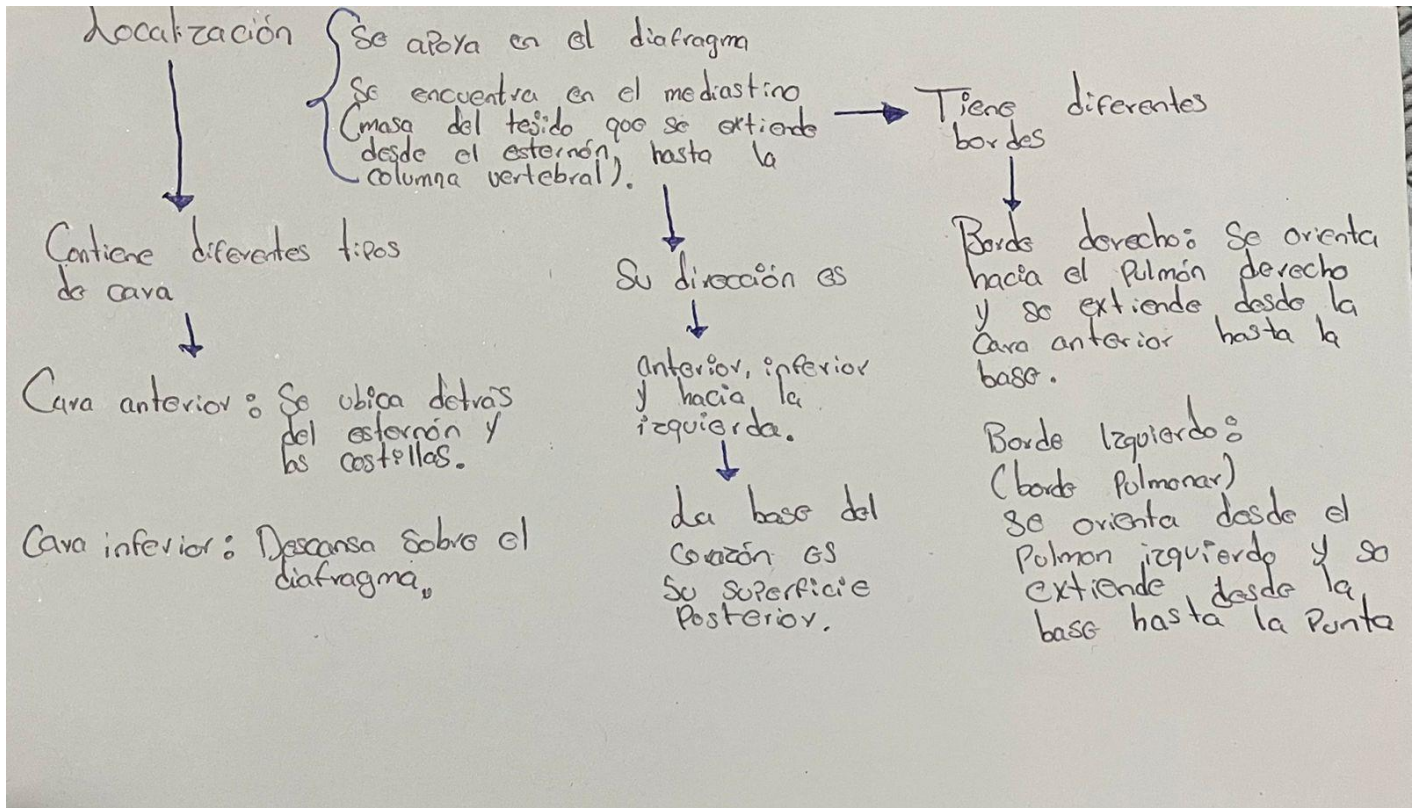 Localización
Se apoya en el diafragma
Se encuentra en el mediastino
(masa del tejido que se extiende
desde el esternón, hasta la
columna vertebral).
Contiene diferentes tipos
de cara
Cara anterior: Se ubica detrás
del esternón y
las costillas.
Cara inferior: Descansa sobre el
diafragma.
Su dirección es
anterior, inferior
y hacia la
izquierda.
La base del
corazón es
su superficie
Posterior.
Tiene diferentes
bordes
Borde derecho: Se orienta
hacia el Pulmón derecho
y se extiende desde la
Cara anterior hasta la
base.
Borde Izquierdo:
(borde Pulmonar)
se orienta desde el
Pulmon izquierdo y se
extiende desde la
base hasta la Punta